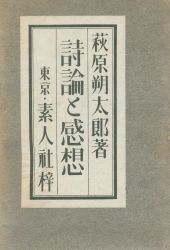 萩原朔太郎著
詩論と感想
東京・素人社梓